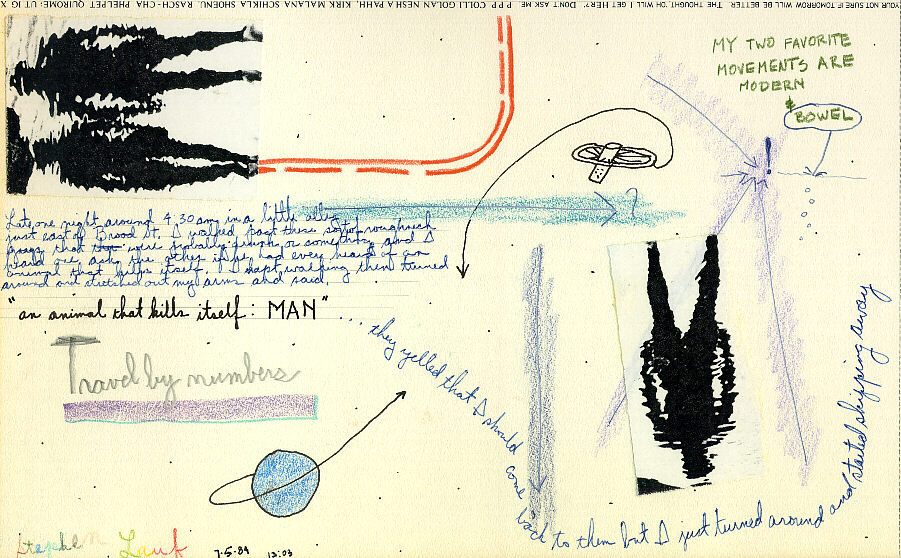 YOUR NOT SURE IF TOMORROW WILL BE BETTER. THE THOUGHT, 'OH, WILL I GET HER?'. DON'T ASK ME. P P P COLLO GOLAN NESH A PAHH, KIRK MALANA SCHIKLLA
MY TWO FAVORITE
MOVEMENTS ARE
MODERN
&
BOWEL
!
?
Late one night around 4:30 am in a little alley
just east of Broad St. I walked past these sort of roughneck
guys that were probably drunk or something and I
heard one ask the other if he had ever heard of an
animal that kills itself. I kept walking then turned
around and stretched out my arms and said,
"an animal that kills itself: MAN"
... they yelled that I should come back to them but I just turned around and started skipping away
Travel by numbers
Stephen Lauf
7.5.89 12:03